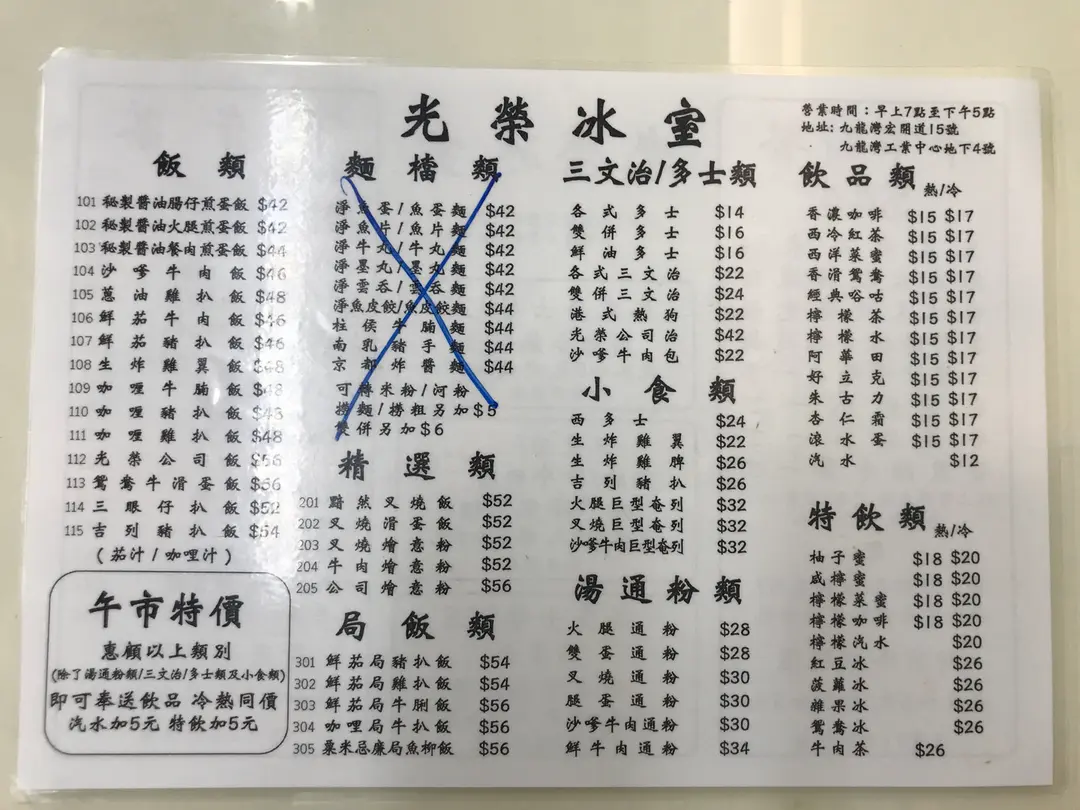 光榮冰室
營業時間：早上7點至下午5點
地址：九龍灣宏開道15號
九龍灣工業中心地下4號
飯類
101 秘製醬油腸仔煎蛋飯 $42
102 秘製醬油火腿煎蛋飯 $42
103 秘製醬油餐肉煎蛋飯 $44
104 沙嗲牛肉飯 $46
105 蔥油雞扒飯 $48
106 鮮茄牛肉飯 $46
107 鮮茄豬扒飯 $46
108 生炸雞翼飯 $48
109 咖喱牛腩飯 $48
110 咖喱豬扒飯 $48
111 咖喱雞扒飯 $48
112 光榮公司飯 $56
113 鴛鴦牛滑蛋飯 $56
114 三眼仔扒飯 $52
115 吉列豬扒飯 $54
(茄汁/咖哩汁)
午市特價
惠顧以上類別
(除了湯通粉類/三文治/多士類及小食類)
即可奉送飲品 冷熱同價
汽水加5元 特飲加5元
麵檔類
淨魚蛋/魚蛋麵 $42
淨魚片/魚片麵 $42
淨牛丸/牛丸麵 $42
淨墨丸/墨丸麵 $42
淨雲吞/雲吞麵 $42
淨魚皮餃/魚皮餃麵 $44
柱侯牛腩麵 $44
南乳豬手麵 $44
京都炸醬麵 $44
可轉米粉/河粉
撈麵/撈粗另加$5
雙併另加$6
精選類
201 黯然叉燒飯 $52
202 叉燒滑蛋飯 $52
203 叉燒燴意粉 $52
204 牛肉燴意粉 $52
205 公司燴意粉 $56
局飯類
301 鮮茄局豬扒飯 $54
302 鮮茄局雞扒飯 $54
303 鮮茄局牛脷飯 $56
304 咖哩局牛扒飯 $56
305 粟米忌廉局魚柳飯 $56
三文治/多士類
各式多士 $14
雙併多士 $16
鮮油多士 $16
各式三文治 $22
雙併三文治 $24
港式熱狗 $22
光榮公司治 $42
沙嗲牛肉包 $22
小食類
西多士 $24
生炸雞翼 $22
生炸雞脾 $26
吉列豬扒 $26
火腿巨型奄列 $32
叉燒巨型奄列 $32
沙嗲牛肉巨型奄列 $32
湯通粉類
火腿通粉 $28
雙蛋通粉 $28
叉燒通粉 $30
腿蛋通粉 $30
沙嗲牛肉通粉 $30
鮮牛肉通粉 $34
飲品類 熱/冷
香濃咖啡 $15 $17
西冷紅茶 $15 $17
西洋菜蜜 $15 $17
香滑鴛鴦 $15 $17
經典唂咕 $15 $17
檸檬茶 $15 $17
檸檬水 $15 $17
阿華田 $15 $17
好立克 $15 $17
朱古力 $15 $17
杏仁霜 $15 $17
滾水蛋 $15 $17
汽水 $12
特飲類 熱/冷
柚子蜜 $18 $20
咸檸蜜 $18 $20
檸檬菜蜜 $18 $20
檸檬咖啡 $18 $20
檸檬汽水 $20
紅豆冰 $26
菠蘿冰 $26
雜果冰 $26
鴛鴦冰 $26
牛肉茶 $26